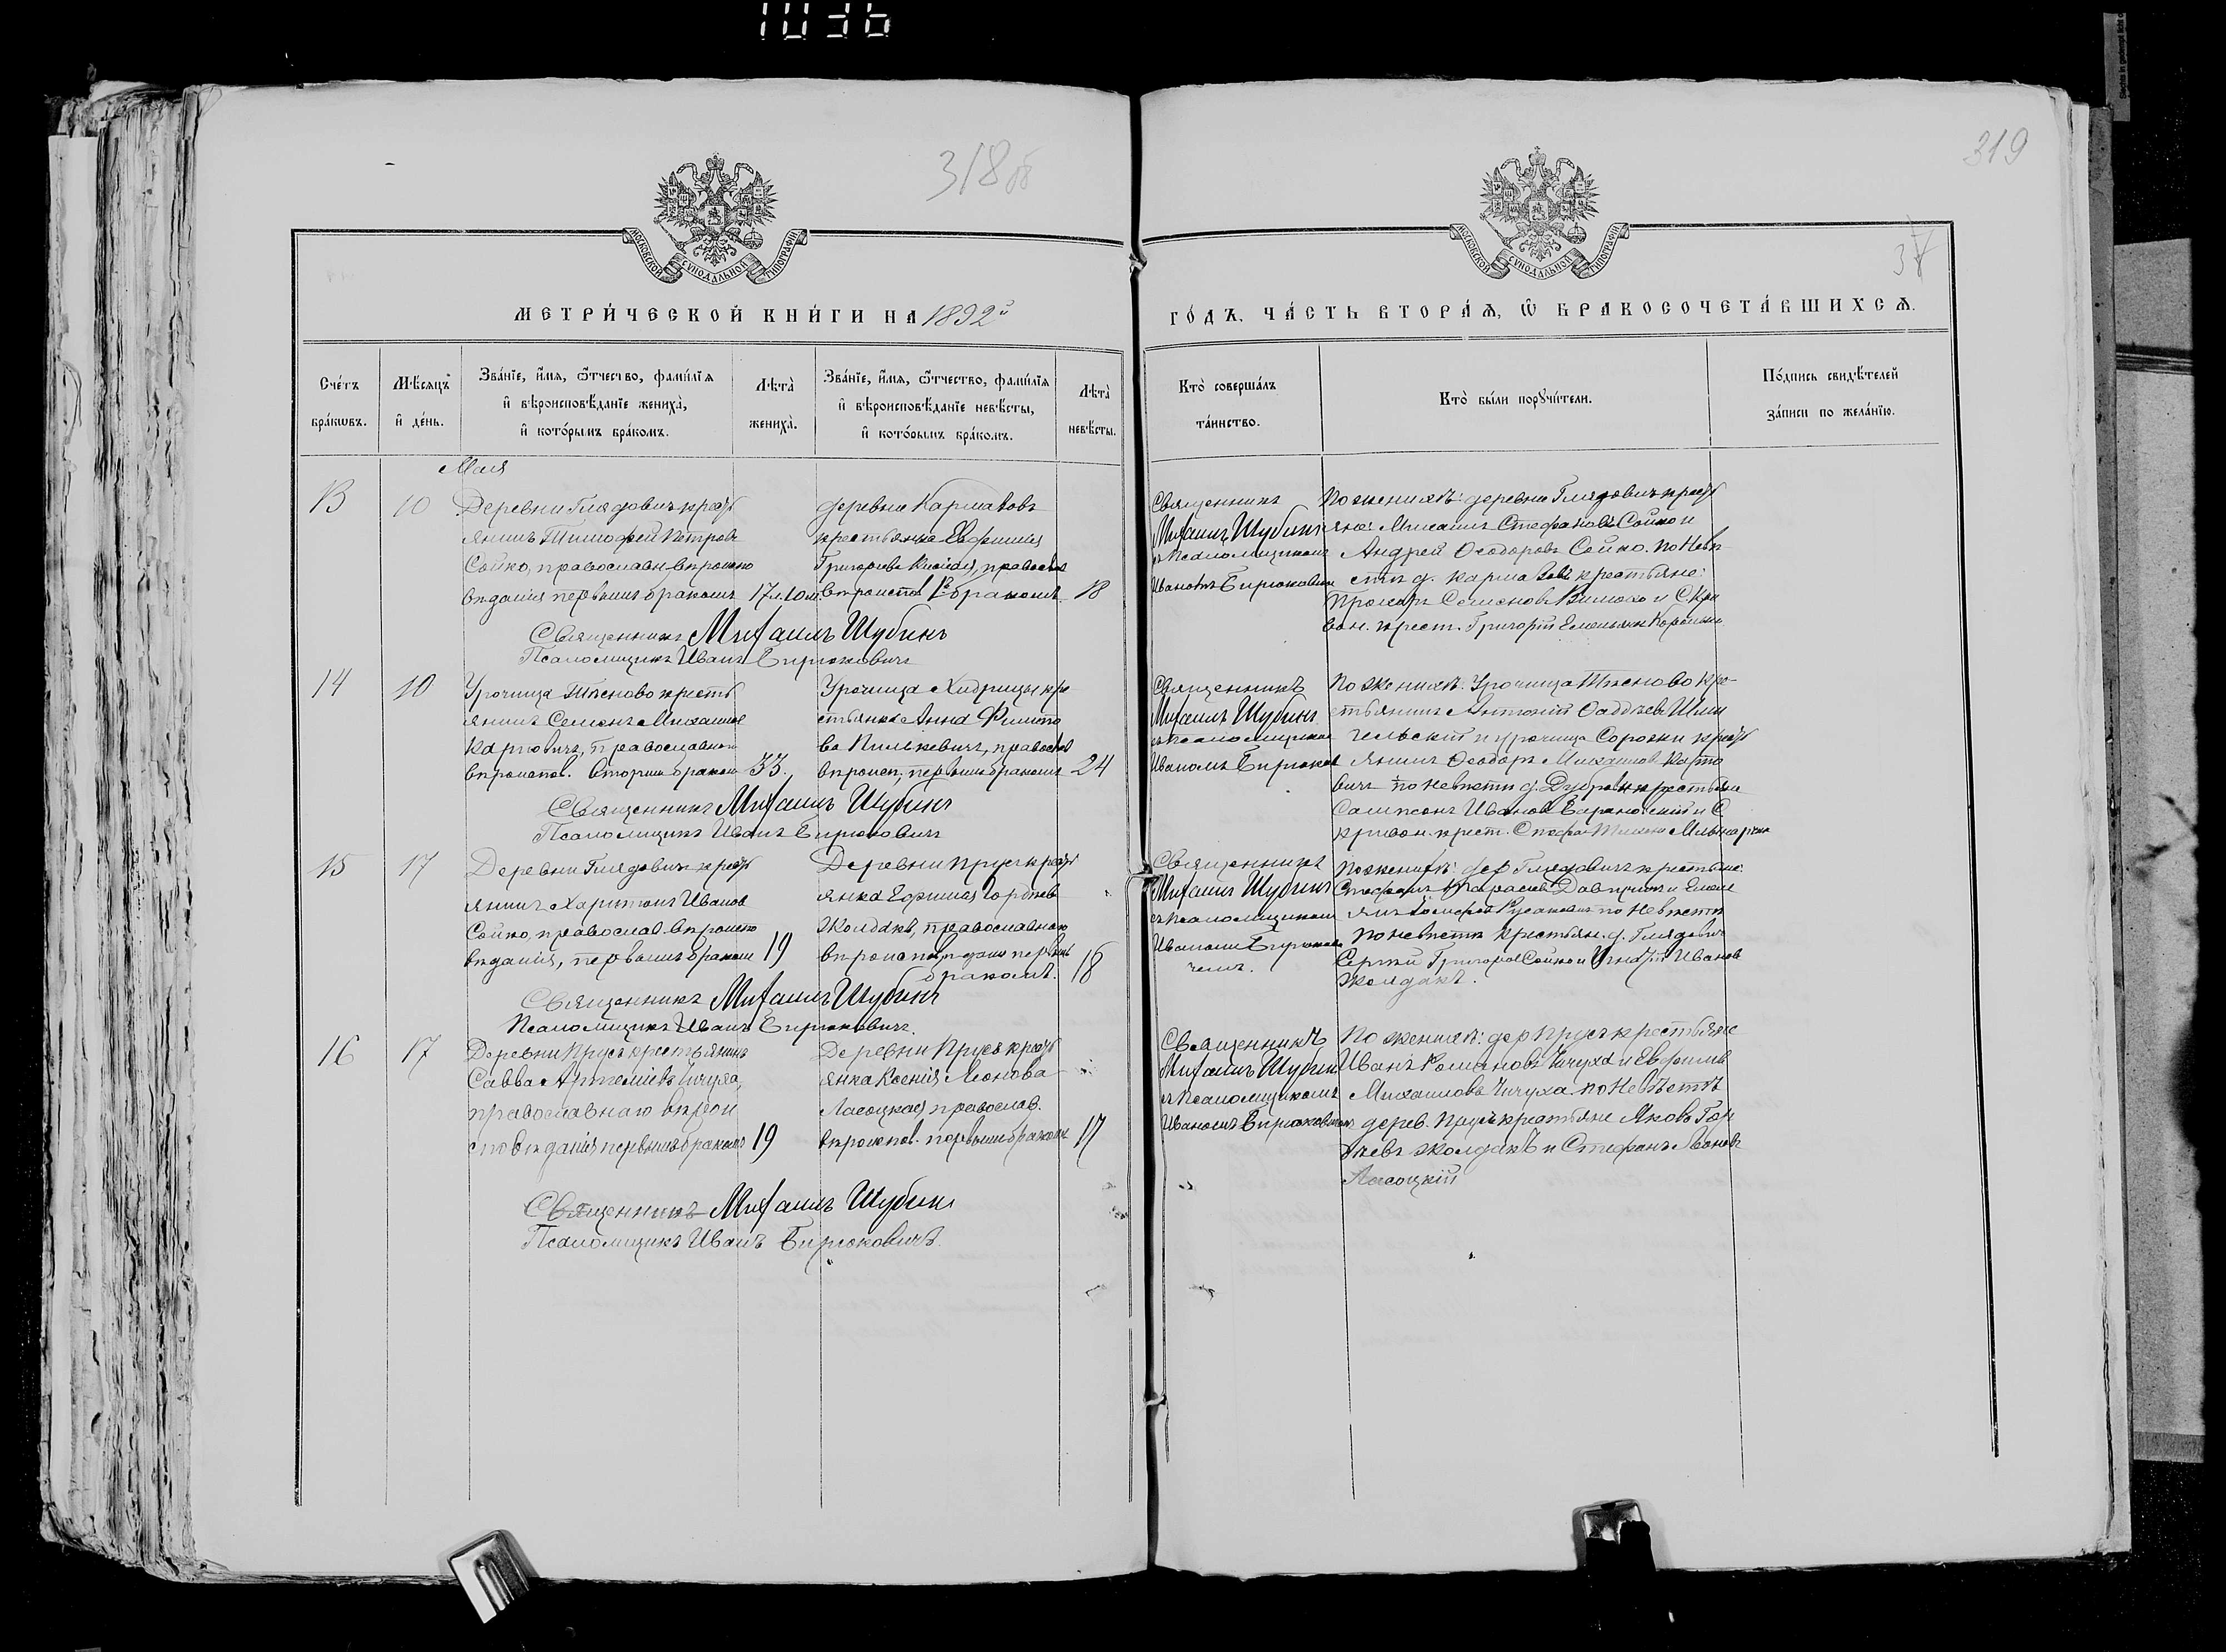 1036
318 об
319
МОСКОВСКОЙ СѴНОДАЛЬНОЙ ТИПОГРАФІИ
МОСКОВСКОЙ СѴНОДАЛЬНОЙ ТИПОГРАФІИ
МЕТРИ́ЧЕСКОЙ КНИ́ГИ НА 1892й
ГО́ДЪ, ЧА́СТЬ ВТОРА́Я, Ѿ БРАКОСОЧЕТА́ВШИХСЯ.
Сче́тъ бра́кѡвъ.
Мѣ́сяцъ и҆ де́нь.
Зва́нїе, и҆́мя, ѻ҆́тчество, фами́лїя
и҆ вѣроисповѣ́данїе жениха̀,
и҆ кото́рымъ бра́комъ.
Лѣта̀ жениха̀.
Зва́нїе, и҆́мя, ѻ҆́тчество, фами́лїя
и҆ вѣроисповѣ́данїе невѣ́сты,
и҆ кото́рымъ бра́комъ.
Лѣта̀ невѣ́сты.
Кто̀ соверша́лъ та́инство.
Кто̀ бы́ли порꙋчи́тели.
По́дпись свидѣ́телей за́писи по жела́нїю.
Мая
13
10
Деревни Глядовичъ крест
янинъ Тимофей Петровъ
Сойко, православн. вѣроиспо
вѣданія первымъ бракомъ
17 л. 10 м.
деревни Кармазовъ
крестьянка Евфимія
Григорьева православ
вѣроиспов 1мъ бракомъ
18
Священникъ
Михаилъ Шубинъ
съ Псаломщикомъ
Иваномъ Бирюковичемъ
По женихѣ: деревни Глядовичъ крест
яне: Михаилъ Стефановъ Сойко и
Андрей Ѳеодоровъ Сойко. По Невѣ
стѣ д. крестьяне:
Прохоръ Семеновъ и С. Кри
вон. крест. Григорій
Священникъ Михаилъ Шубинъ
Псаломщикъ Иванъ Бирюковичъ
14
10
Урочища крестъ
янинъ Семенъ Михаиловъ
Карповичъ, Православнаго
вѣроиспов. вторымъ бракомъ
33
Урочища Хидрицы кре
стьянка Анна Филиппо
ва Пилькевичъ, православ
вѣроисп. первымъ бракомъ
24
Священникъ
Михаилъ Шубинъ
съ псаломщикомъ
Иваномъ Бирюков
По женихѣ: Урочища кре-
стьянинъ Антоній Ѳаддѣевъ
и урочища Сороки крест
янинъ Ѳеодоръ Михаиловъ Карпо
вичъ по невѣсти д. крестьяне
Сампсонъ Ивановъ Барановскій и С.
кривон. крест.
Священникъ Михаилъ Шубинъ
Псаломщикъ Иванъ Бирюковичъ
15
17
Деревни Глядовичъ крест
янинъ Харитонъ Ивановъ
Сойко, православ. вѣроиспо
вѣданія, первымъ бракомъ
19
Деревни Прусъ крест
янка Евфимія Гордѣева
Жолдакъ, православнаго
вѣроисповѣданія первымъ
бракомъ.
18
Священникъ
Михаилъ Шубинъ
съ псаломщикомъ
Иваномъ Бирюкови
чемъ.
По женихѣ: дер Глядовичъ крестьяне:
Стефанъ Тарасовъ и Емель
янъ по невѣсти
по невѣсти крестьян. д. Глядовичъ
Сергій Григорьевъ Сойко и Игнатій Ивановъ
Жолдакъ.
Священникъ Михаилъ Шубинъ
Псаломщикъ Иванъ Бирюковичъ.
16
17
Деревни Прусъ крестьянинъ
Савва Артеміевъ Чичуха,
православнаго вѣрои
сповѣданія первымъ бракомъ
19
Деревни Прусъ крест
янка Ксенія Леонова
Ласоцкая, православ.
вѣроиспов. первымъ бракомъ
17
Священникъ
Михаилъ Шубинъ
съ Псаломщикомъ
Иваномъ Бирюковичемъ
По женихѣ: дер Прусъ крестьяне
Иванъ Романовъ Чичуха и Евфимій
Михаиловъ Чичуха. по Невѣстѣ
дерев. Прусъ крестьяне Яковъ Гор
дѣевъ Жолдакъ и Стефанъ Леоновъ
Ласоцкій
Священникъ Михаилъ Шубинъ
Псаломщикъ Иванъ Бирюковичъ.